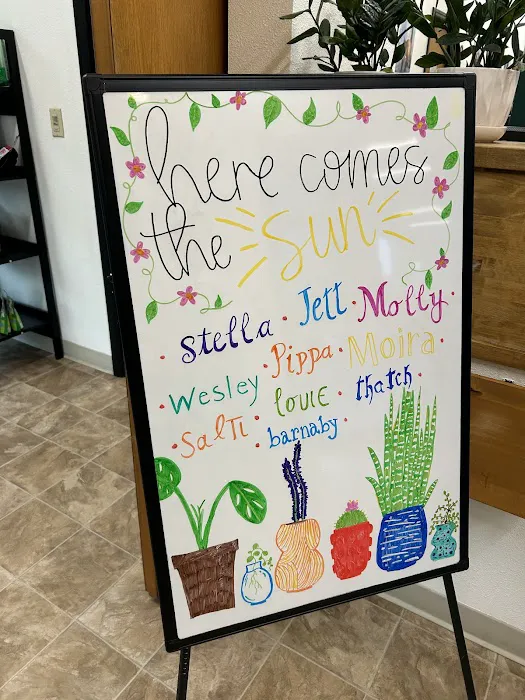 here comes
the sun
Stella · Jett · Molly ·
· Wesley · Pippa · Moira ·
· Salti · louie · thatch ·
barnaby